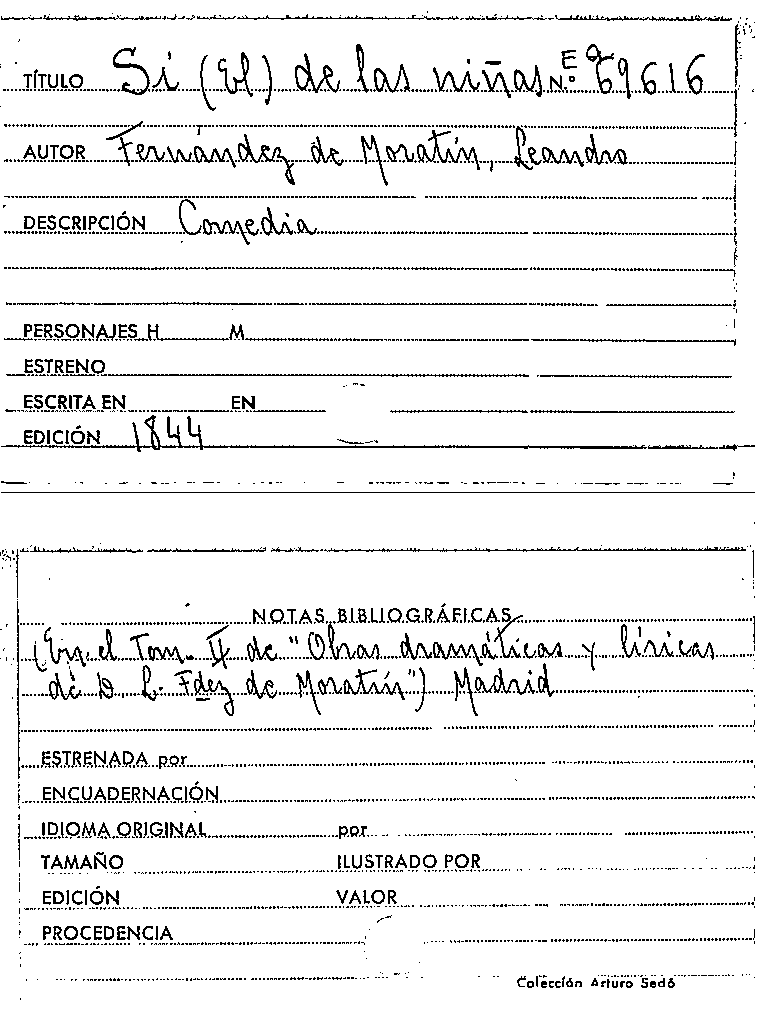 TÍTULO Sí (El) de las niñas N.º E 69616
AUTOR Fernández de Moratín, Leandro
DESCRIPCIÓN Comedia
PERSONAJES H M
ESTRENO
ESCRITA EN EN
EDICIÓN 1844
NOTAS BIBLIOGRÁFICAS
(En el Tom. II de "Obras dramáticas y líricas
de D L. Fdez de Moratín") Madrid
ESTRENADA por
ENCUADERNACIÓN
IDIOMA ORIGINAL por
TAMAÑO ILUSTRADO POR
EDICIÓN VALOR
PROCEDENCIA
Colección Arturo Sedó